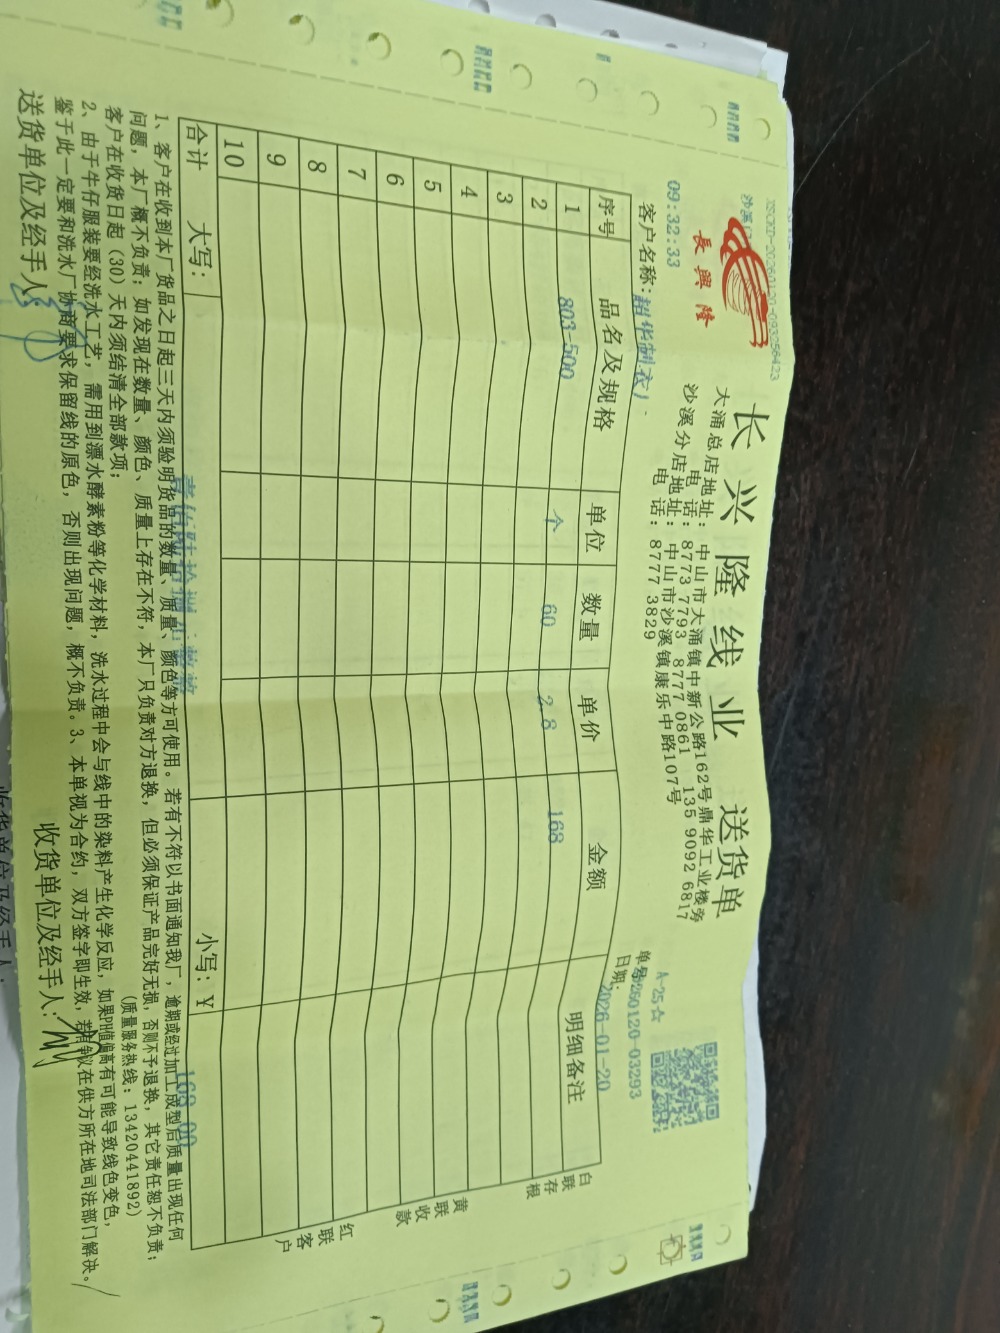 長興隆
长兴隆线业 送货单
大涌总店地址: 中山市大涌镇中新公路162号鼎华工业楼旁
电 话: 8773 7793 8777 0861 135 9092 6817
沙溪分店地址: 中山市沙溪镇康乐中路107号
电 话: 8777 3829
A-25☆
09:32:33
单号:260120-03293
客户名称:超华制衣厂
日期:2026-01-20
序号 品名及规格 单位 数量 单价 金额 明细备注
1 803-500 个 60 2.8 168
2
3
4
5
6
7
8
9
10
合计 大写: 壹佰陆拾捌元整 小写: ¥ 168.00
白联存根
黄联收款
红联客户
1、客户在收到本厂货品之日起三天内须验明货品的数量、质量、颜色等方可使用。若有不符以书面通知我厂,逾期或经过加工成型后质量出现任何
问题,本厂概不负责;如发现在数量、颜色、质量上存在不符,本厂只负责对方退换,但必须保证产品完好无损,否则不予退换,其它责任恕不负责;
客户在收货日起(30)天内须结清全部款项; (质量服务热线: 13420441892)
2、由于牛仔服装要经洗水工艺,需用到漂水酵素粉等化学材料,洗水过程中会与线中的染料产生化学反应,如果PH值偏高有可能导致线色变色,
鉴于此一定要和洗水厂协商要求保留线的原色,否则出现问题,概不负责。3、本单视为合约,双方签字即生效,若有争议在供方所在地司法部门解决。
送货单位及经手人: 收货单位及经手人: